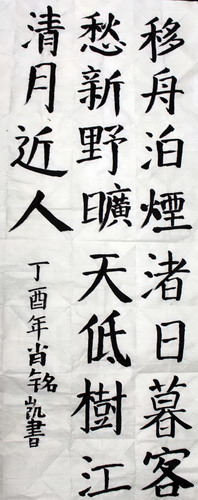 移舟泊煙渚日暮客
愁新野曠天低樹江
清月近人
丁酉年肖铭凯書